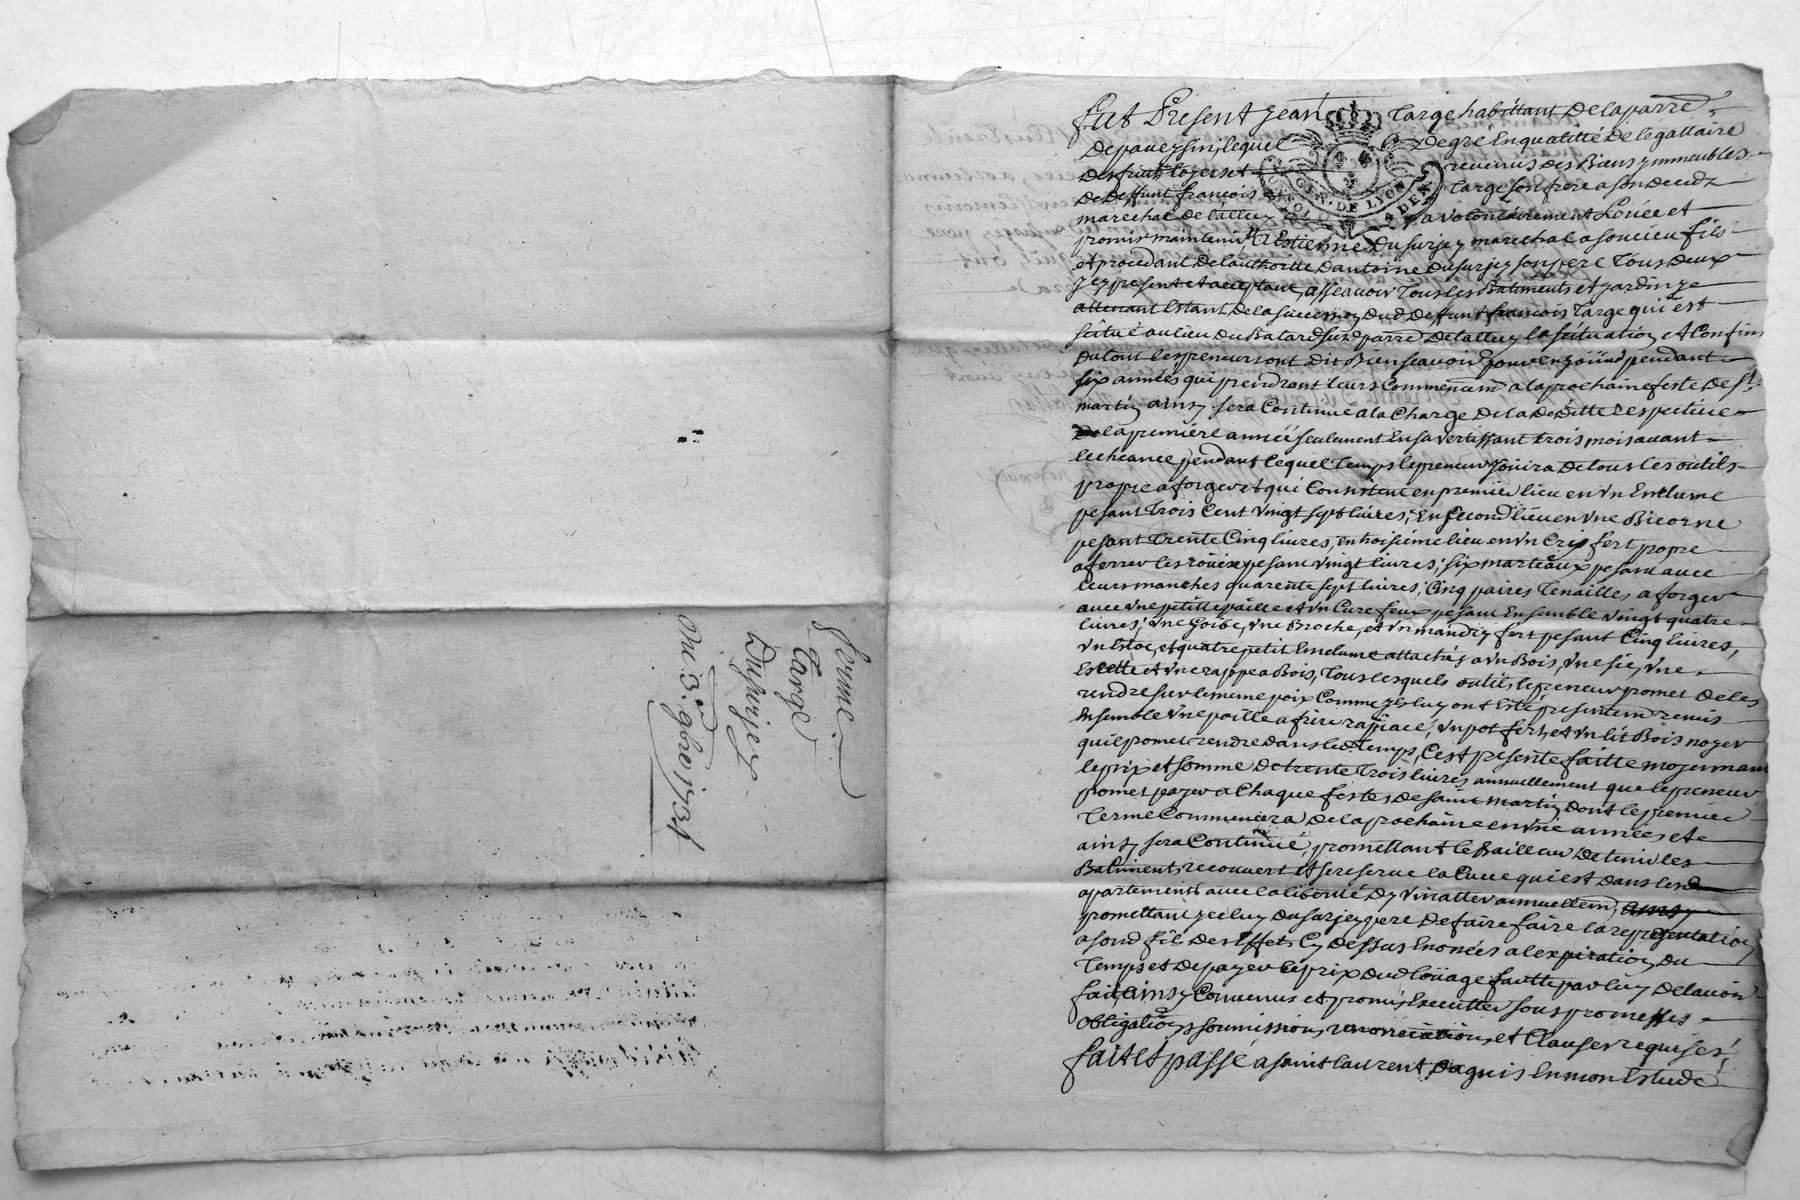 fut Present Jean Targe habittant de la parre
de paveysin, lequel de gré en qualitté de legattaire
des fruits loyers et revenus des Biens ymmeubles
de deffunt françois Targe son frere a son decedz
marechal de l'alluy a volontairement Loüée et
promis maintenir a Estienne Dusurjey marechal a soucieu fils
et procedant de l'authoritté d'antoine dusurjey son pere tous deux
jcy present et acceptant, asseavoir tous les Batiments et jardin ye
attenant Estant de la succession dud deffunt francois Targe qui est
scitué au lieu du Batard sud parre de lalluy la scituation et Confins
du tout les preneurs ont dit Bien scavoir pour en joüir pendant
six années qui preindront leurs Commencem a la prochaine feste de st
martin ainsy sera Continué a la Charge de la deditte respective
de la premiere année seulement En s'avertissant trois mois avant
lecheance pendant lequel temps le preneur joüira de tous les outils
propre a forger et qui Consistent en premier lieu en vn Enclume
pesant Trois Cent vingt sept livres, En second lieu en vne Bicorne
pesant trente Cinq livres, en troisieme lieu en vn Cry fert propre
a ferrer les roües pesant vingt livres; six marteaux pesant avec
leurs manches quarente sept livres; Cinq paires Tenailles a forger
avec vne petitte paille et vn Cure feux pesant Ensemble vingt quatre
livres; vne Goibe, vne Broche, et vn mandrin fert pesant Cinq livres,
vn Etoc, et quatre petit Enclume attachés a vn Bois, vne sie, vne
Escette et vne rappe a Bois, Tous lesquels outils le preneur promet de les
rendre sur le meme poix Comme ils luy ont Eté presentem remis
Ensemble vne poille a frire rapiacé, vn pot fert, et vn lit Bois noyer
qu'il promet rendre dans led Temps, C'est presente faitte moyennant
le prix et somme de trente Trois livres annuellement que le preneur
promet payer a Chaque festes de saint martin dont le premier
terme Commencera de la prochaine en vne années et
ainsy sera Continué, promettant le Bailleur de tenir les
Batiments recouvert et se reserve la Cuve qui est dans lesd
apartements avec la liberté d'y vinatter annuellem, ainsy
promettant jceluy dusurjey pere de faire faire la representation
a sond fil des Effets Cy dessus Enoncés a l'expiration du
temps et de payer le prix dud loüage faitte par luy de l'avoir
fait ainsy Convenus et promis Executter sous promesses
obligations soumissions, renonciations, et Clauses requises,
fait et passé a saint laurent Dagnis En mon Estude
GEN. DE LYON
Ferme.
Targe
Dusurjey
Du 3e 9bre 1731